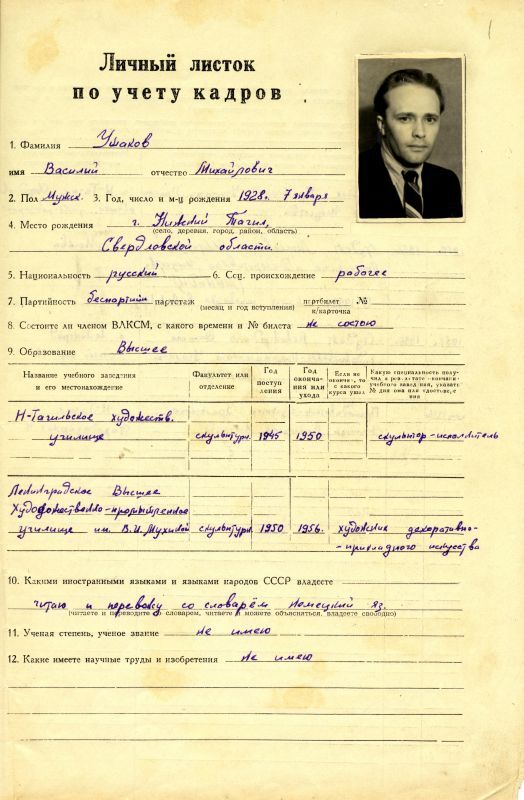 1
Личный листок
по учету кадров
1. Фамилия Ушаков
имя Василий отчество Михайлович
2. Пол Мужск. 3. Год, число и м-ц рождения 1928г. 7 января
4. Место рождения г. Нижний Тагил,
(село, деревня, город, район, область)
Свердловской области
5. Национальность русский 6. Соц. происхождение рабочее
7. Партийность беспартийн партстаж партбилет №
(месяц и год вступления) к/карточка
8. Состоите ли членом ВЛКСМ, с какого времени и № билета не состою
9. Образование Высшее
Название учебного заведения и его местонахождение
Факультет или отделение
Год поступления
Год окончания или ухода
Если не окончил, то с какого курса ушел
Какую специальность получил в результате окончания учебного заведения, указать № диплома или удостоверения
Н-Тагильское художеств.
училище скульптурн. 1945 1950 скульптор-исполнитель
Ленинградское Высшее
Художественно-промышленное
училище им. В.И. Мухиной скульптурн. 1950 1956. художник декоративно-
-прикладного искусства
10. Какими иностранными языками и языками народов СССР владеете
читаю и перевожу со словарём Немецкий яз.
(читаете и переводите со словарем, читаете и можете объясняться, владеете свободно)
11. Ученая степень, ученое звание не имею
12. Какие имеете научные труды и изобретения не имею